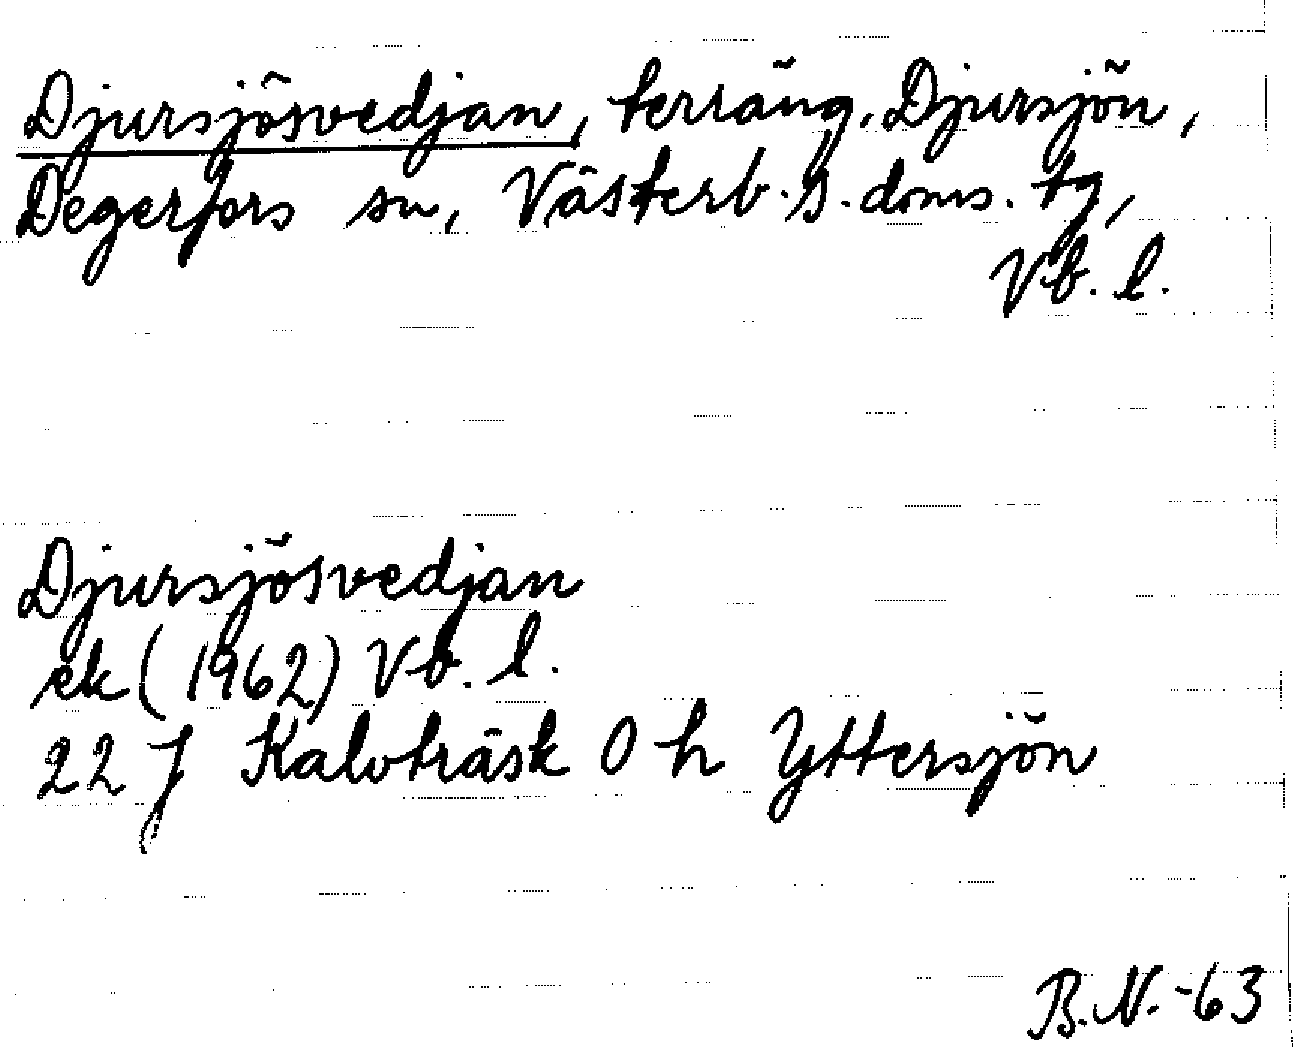 Djursjösvedjan, terräng, Djursjön,
Degerfors sn, Västerb. s. doms. tg,
Vb. l.
Djursjösvedjan
ek (1962) Vb. l.
22 J Kalvträsk 0 h Yttersjön
B.N. -63